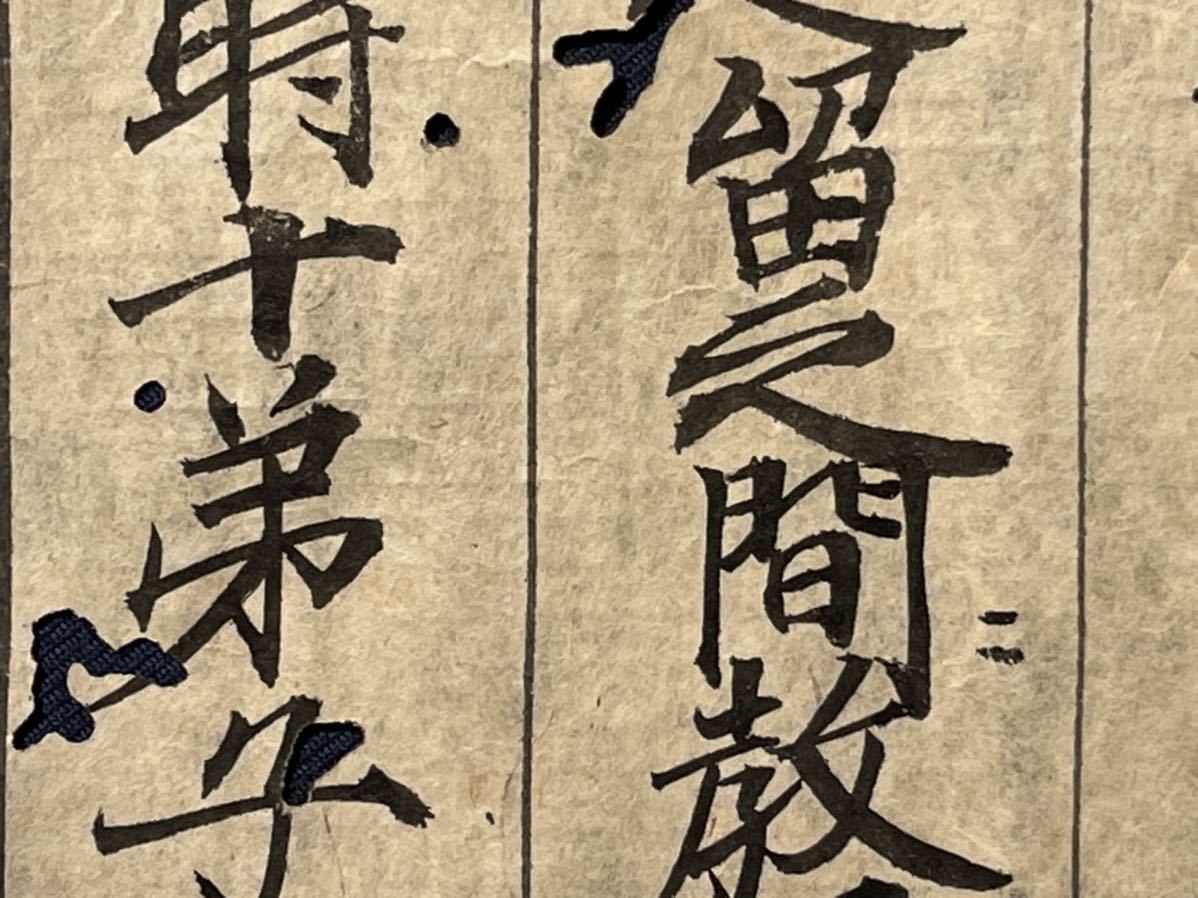 留之間教
時十弟子